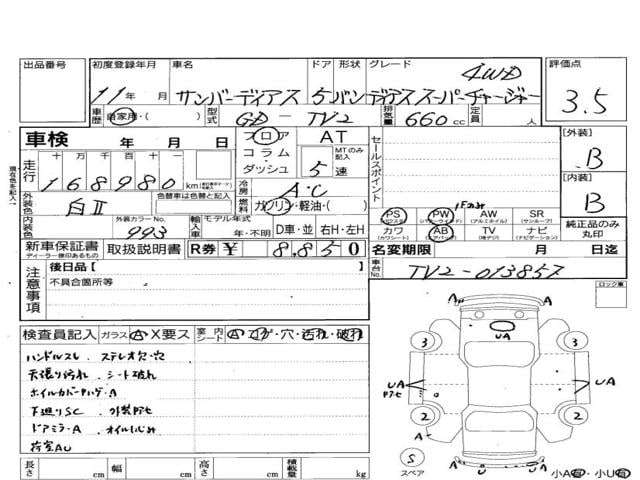 出品番号 初度登録年月 車名 ドア 形状 グレード 評価点
4WD
11年 月 サンバーディアス 5 バン ディアススーパーチャージャー 3.5
車歴 自家用・( ) 型式 GD-TV2 排気量 660cc 定員 人
車検 年 月 日 フロア コラム・ダッシュ AT MTのみ記入 5速 セールスポイント [外装] B
走行 十万千百十一
168980km
冷房 A・C [内装] B
外装色 白II 色替車は色替と記入 燃料 ガソリン・軽油・( )
1Fのみ
PS パワステ PW パワーウインド AW アルミホイル SR サンルーフ
内装色 外装カラーNo. 993 輸入車 モデル年式 年・不明 D車・並 右H・左H カワ カワシート AB エアバック TV 地デジ ナビ ナビゲーション 純正品のみ丸印
新車保証書 ディーラー捺印あるもの 取扱説明書 R券 ¥ 8,850 名変期限 月 日迄
注意事項 後日品[ ] 車台No. TV2-013857
不具合箇所等 ロック車
現在色を記入
検査員記入 ガラス A・X要ス 室内シート A・コゲ・穴・汚れ・破れ
ハンドルスレ . ステレオ欠・穴
天張り汚れ . シート破れ
ホイルカバー A
下廻りSC .
ドアミラーA . オイルにじみ
荷室AU
A A
UA
3 3
UA UA
2 2
A A
S
スペア
A U U A
小A有・小U有
長さ cm 幅 cm 高さ cm 積載量 kg